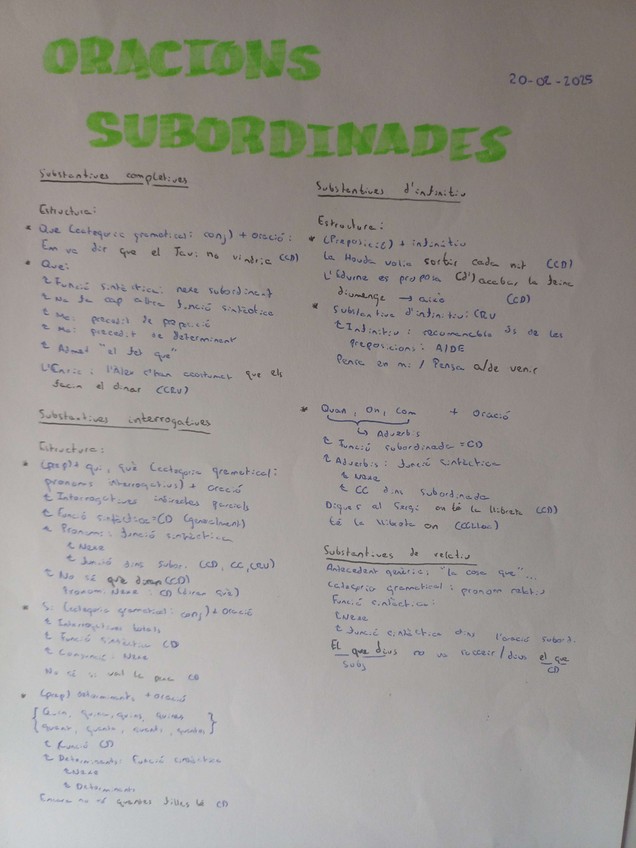 ORACIONS
20-02-2025
SUBORDINADES
Substantives completives
Estructura:
* Que (categoria gramatical: conj) + oració:
Em va dir que el Javi no vindria (CD)
* Que:
Funció sintàctica: nexe subordinant
No fa cap altra funció sintàctica
Mai precedit de preposició
Mai precedit de determinant
Admet "el fet que"
L'Enric i l'Àlex s'han acostumat que els
facin el dinar (CRV)
Substantives interrogatives
Estructura:
* (prep) + qui, què (categoria gramatical:
pronoms interrogatius) + oració
Interrogatives indirectes parcials
Funció sintàctica = CD (generalment)
Pronoms: funció sintàctica
Nexe
Funció dins subor. (CD, CC, CRV)
No sé què diran (CD)
Pronom: Nexe : CD (diran què)
* Si (categoria gramatical: conj) + oració
Interrogatives totals
Funció sintàctica CD
Conjunció: Nexe
No sé si val la pena CD
* (prep) determinants + oració
{ Quin, quina, quins, quines }
{ quant, quanta, quants, quantes }
Funció CD
Determinants: Funció sintàctica
Nexe
Determinant
Encara no sé quantes filles té CD
Substantives d'infinitiu
Estructura:
* (Preposició) + infinitiu
La Houda volia sortir cada nit (CD)
L'Edurne es proposa (d') acabar la feina
diumenge → això (CD)
* Substantiva d'infinitiu: CRV
Infinitiu: recomanable ús de les
preposicions: A/DE
Pensa en mi / Pensa a/de venir
* Quan, on, com + oració
↳ Adverbis
Funció subordinada = CD
Adverbis: funció sintàctica
Nexe
CC dins subordinada
Digues al Sergi on té la llibreta (CD)
té la llibreta on (CCLloc)
Substantives de relatiu
Antecedent genèric: "la cosa que"...
Categoria gramatical: pronom relatiu
Funció sintàctica:
Nexe
Funció sintàctica dins l'oració subord.
El que dius no va succeir / dius el que
Subj CD